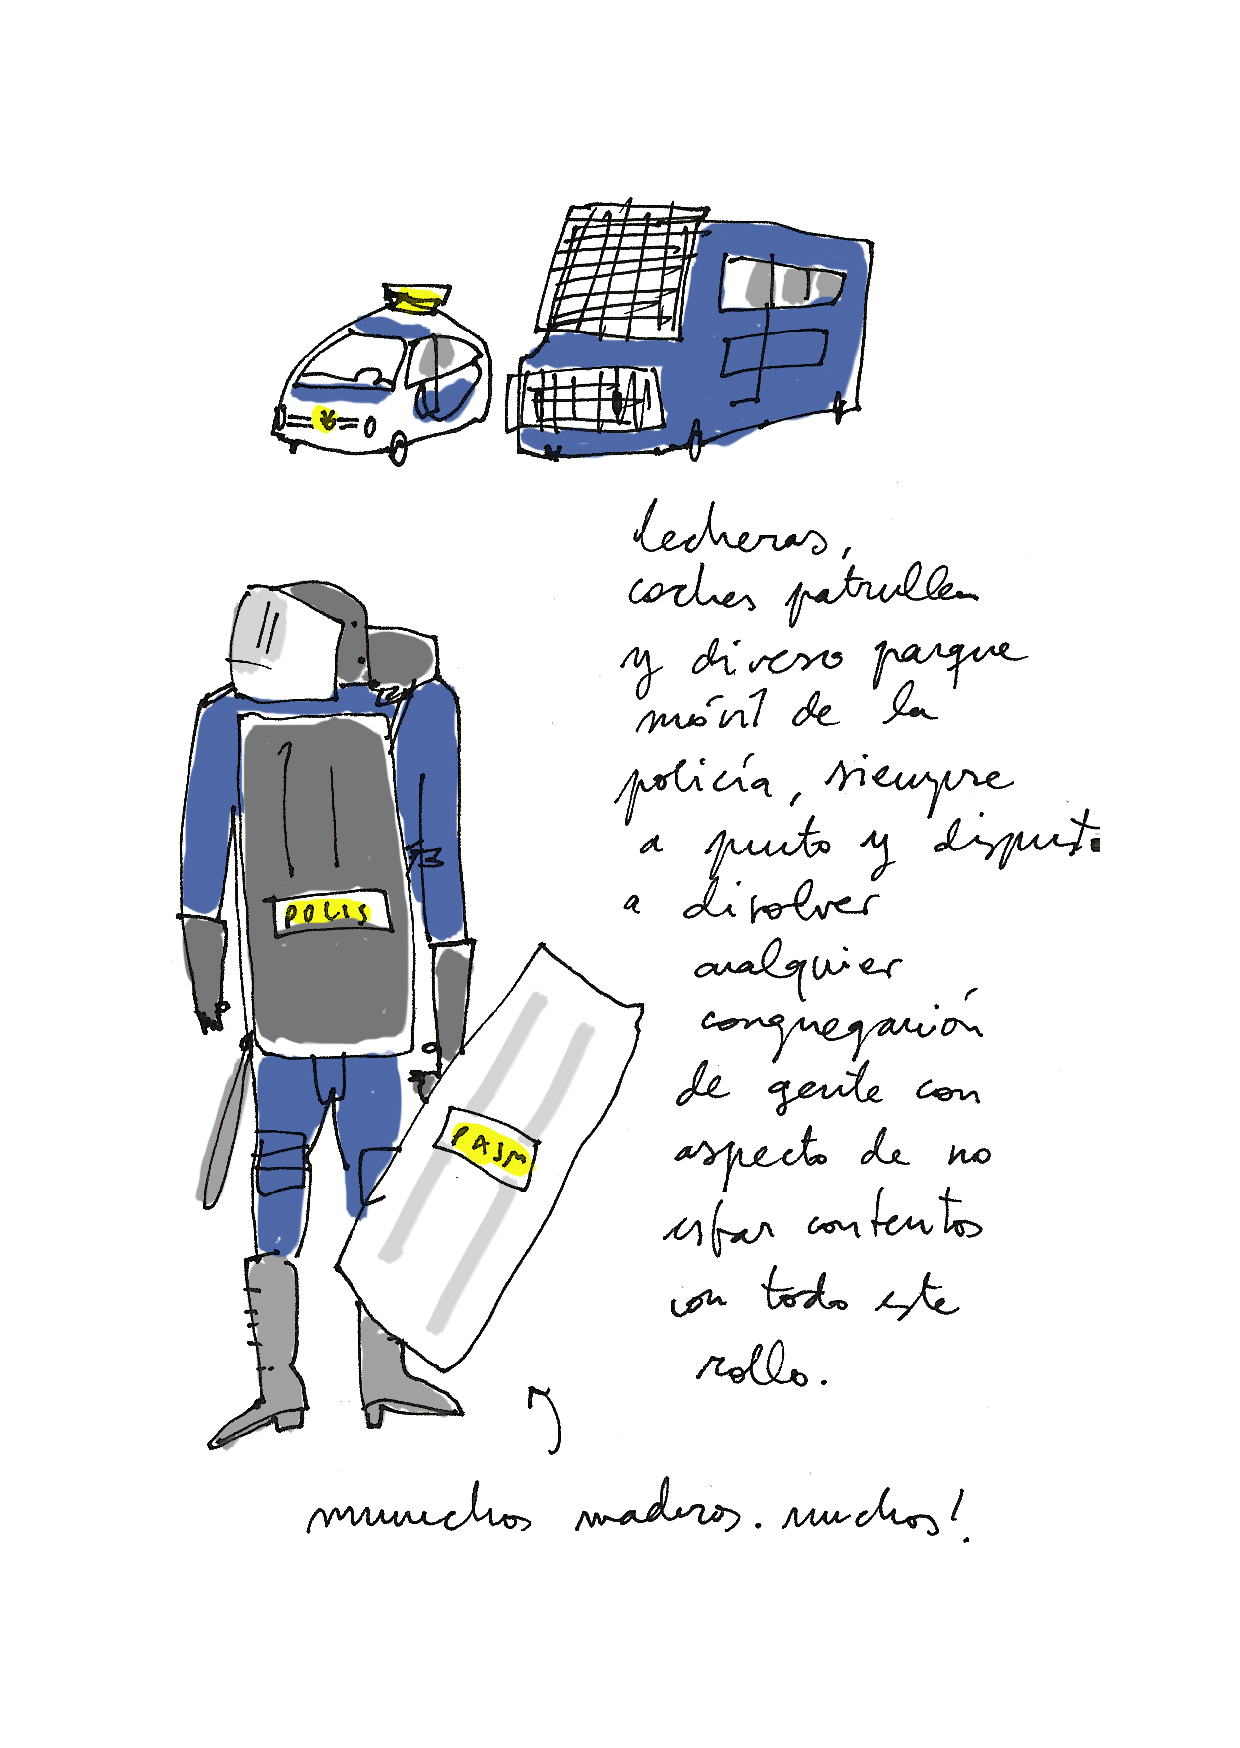 lecheras,
coches patrulla
y diverso parque
móvil de la
policía, siempre
a punto y dispuesto
a disolver
cualquier
congregación
de gente con
aspecto de no
estar contentos
con todo este
rollo.
POLIS
PASM
muuuchos maderos. muchos!